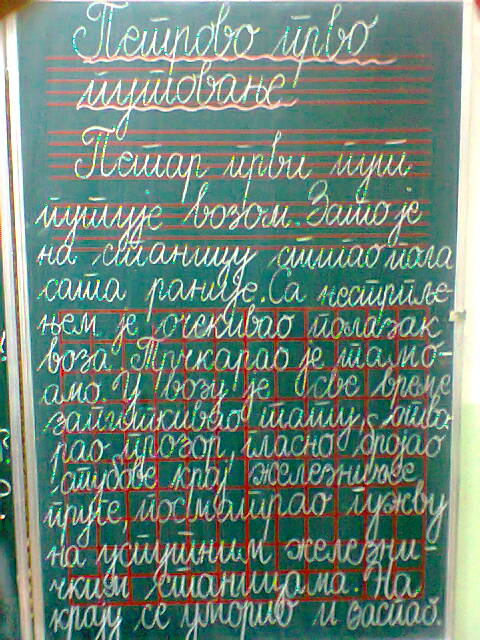 Петрово прво
путовање
Петар први пут
путује возом. Зато је
на станицу стигао пола
сата раније. Са нестрпље-
њем је очекивао полазак
воза. Трчкарао је тамо-
амо. У возу је све време
запиткивао тату, отва-
рао прозор, гласно бројао
стубове крај железничке
пруге, посматрао гужву
на успутним железни-
чким станицама. На
крају се уморио и заспао.